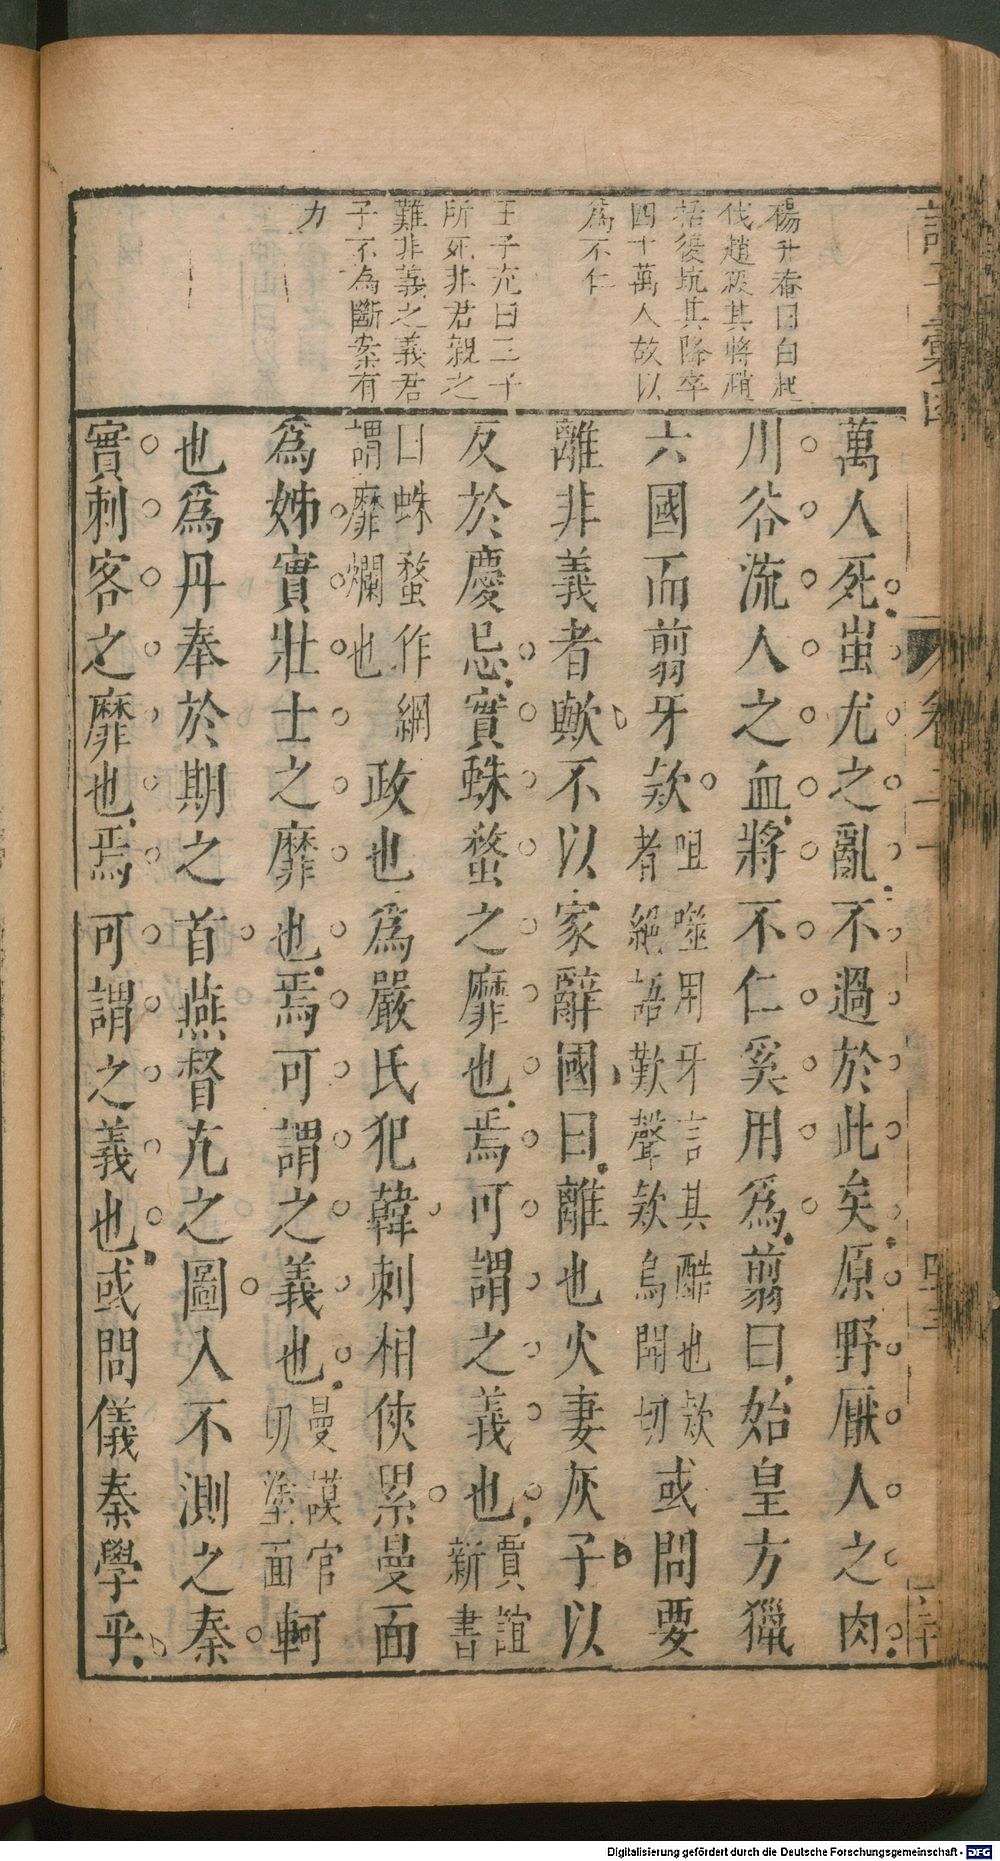 楊升菴曰白起
伐趙殺其將趙
括後坑其降卒
四十萬人故以
爲不仁
王子充曰三子
所死非君親之
難非義之義君
子不為斷案有
力
萬人死蚩尤之亂不過於此矣原野厭人之肉
川谷流人之血將不仁奚用爲翦曰始皇方獵
六國而翦牙欸咀噬用牙言其酷也欸者絕語歎聲欸烏開切或問要
離非義者歟不以家辭國曰離也火妻灰子以
反於慶忌實蛛蝥之靡也焉可謂之義也賈誼新書
曰蛛蝥作網謂靡爛也政也爲嚴氏犯韓刺相俠累曼面
爲姊實壯士之靡也焉可謂之義也曼謨官切塗面軻
也爲丹奉於期之首燕督亢之圖入不測之秦
實刺客之靡也焉可謂之義也或問儀秦學乎
卷二十
Digitalisierung gefördert durch die Deutsche Forschungsgemeinschaft - DFG